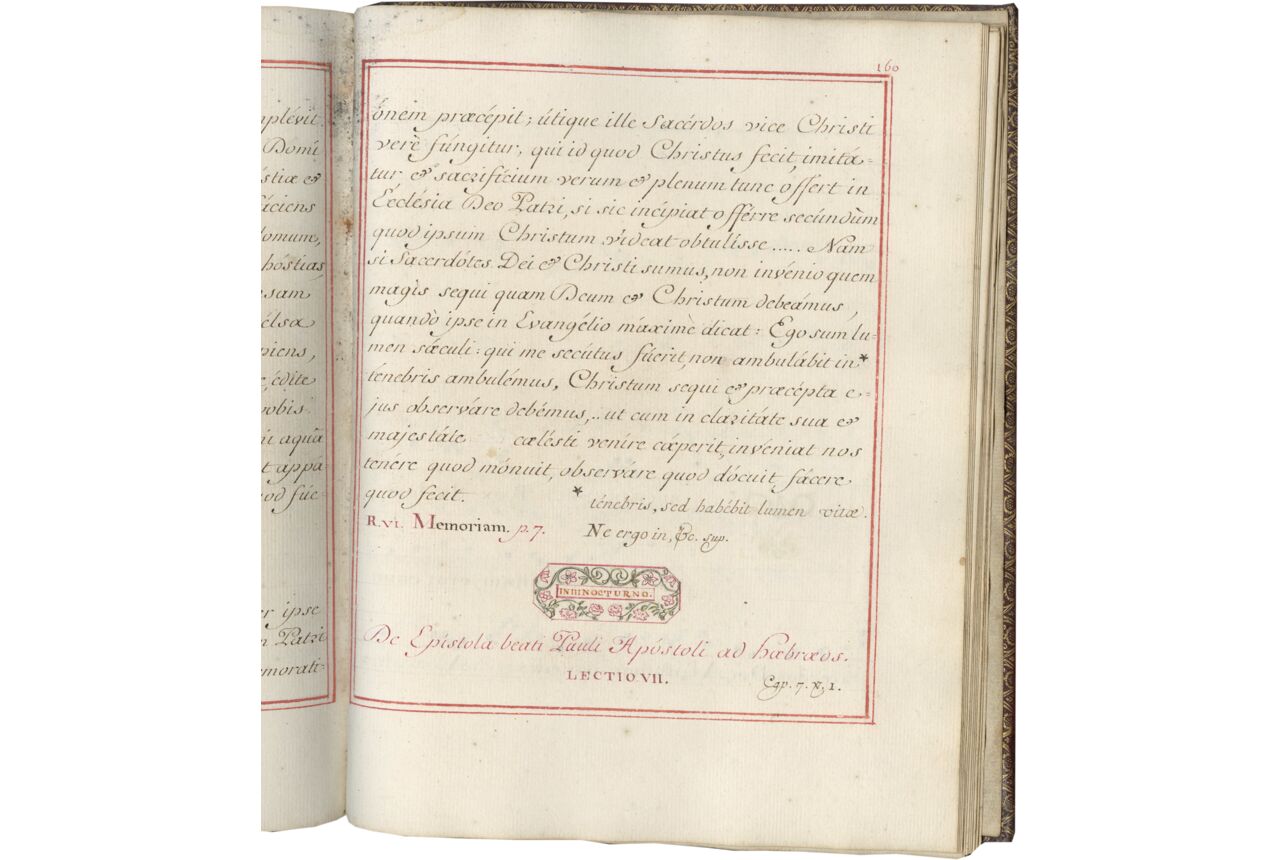 160
mplévit
Domi
stiæ &
fáciens
domum,
hóstias,
esam
célsa
ipiens,
édite
vobis
aquâ
t appá
od fúe
r ipse
n Patri
memorati-
ónem præcépit; útique ille Sacérdos vice Christi
verè fúngitur, qui id quod Christus fecit, imitá-
tur & sacrifícium verum & plenum tunc óffert in
Ecclésia Deo Patri, si sic incípiat offérre secúndùm
quod ipsum Christum vídeat obtulísse..... Nam
si Sacerdótes Dei & Christi sumus, non invénio quem
magìs sequi quam Deum & Christum debeámus,
quandò ipse in Evangélio máximè dicat: Ego sum lu-
men sæculi: qui me secútus fúerit, non ambulábit in *
ténebris ambulémus, Christum sequi & præcépta e-
jus observáre debémus,.. ut cum in claritáte sua &
majestáte cælésti veníre cœperit, invéniat nos
tenére quod mónuit, observáre quod dócuit, fácere
quod fecit. * ténebris, sed habébit lumen vitæ.
R. vi. Memoriam. p. 7. Ne ergo in, &c. sup.
IN III NOCTURNO.
De Epístola beati Pauli Apóstoli ad hæbræos.
LECTIO VII. Cap. 7. ℣. 1.